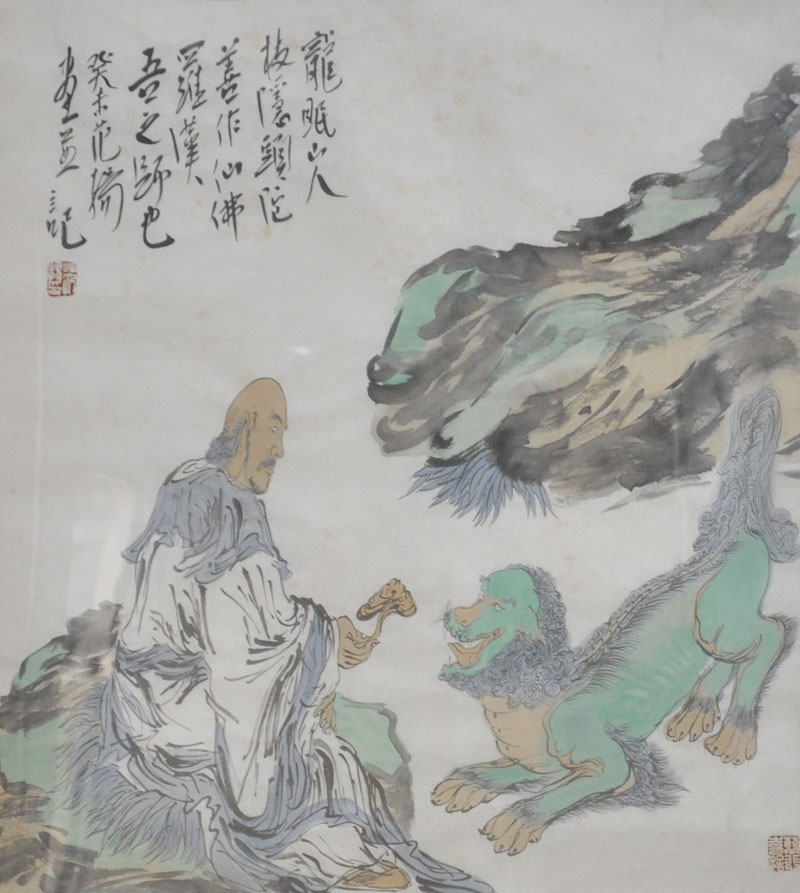 龍眠山人
枝隱頭陀
善作仙佛
羅漢、
吾之師也
癸未范揚
畫並記